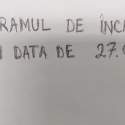 RAMUL DE ÎNCA
DATA DE 27.